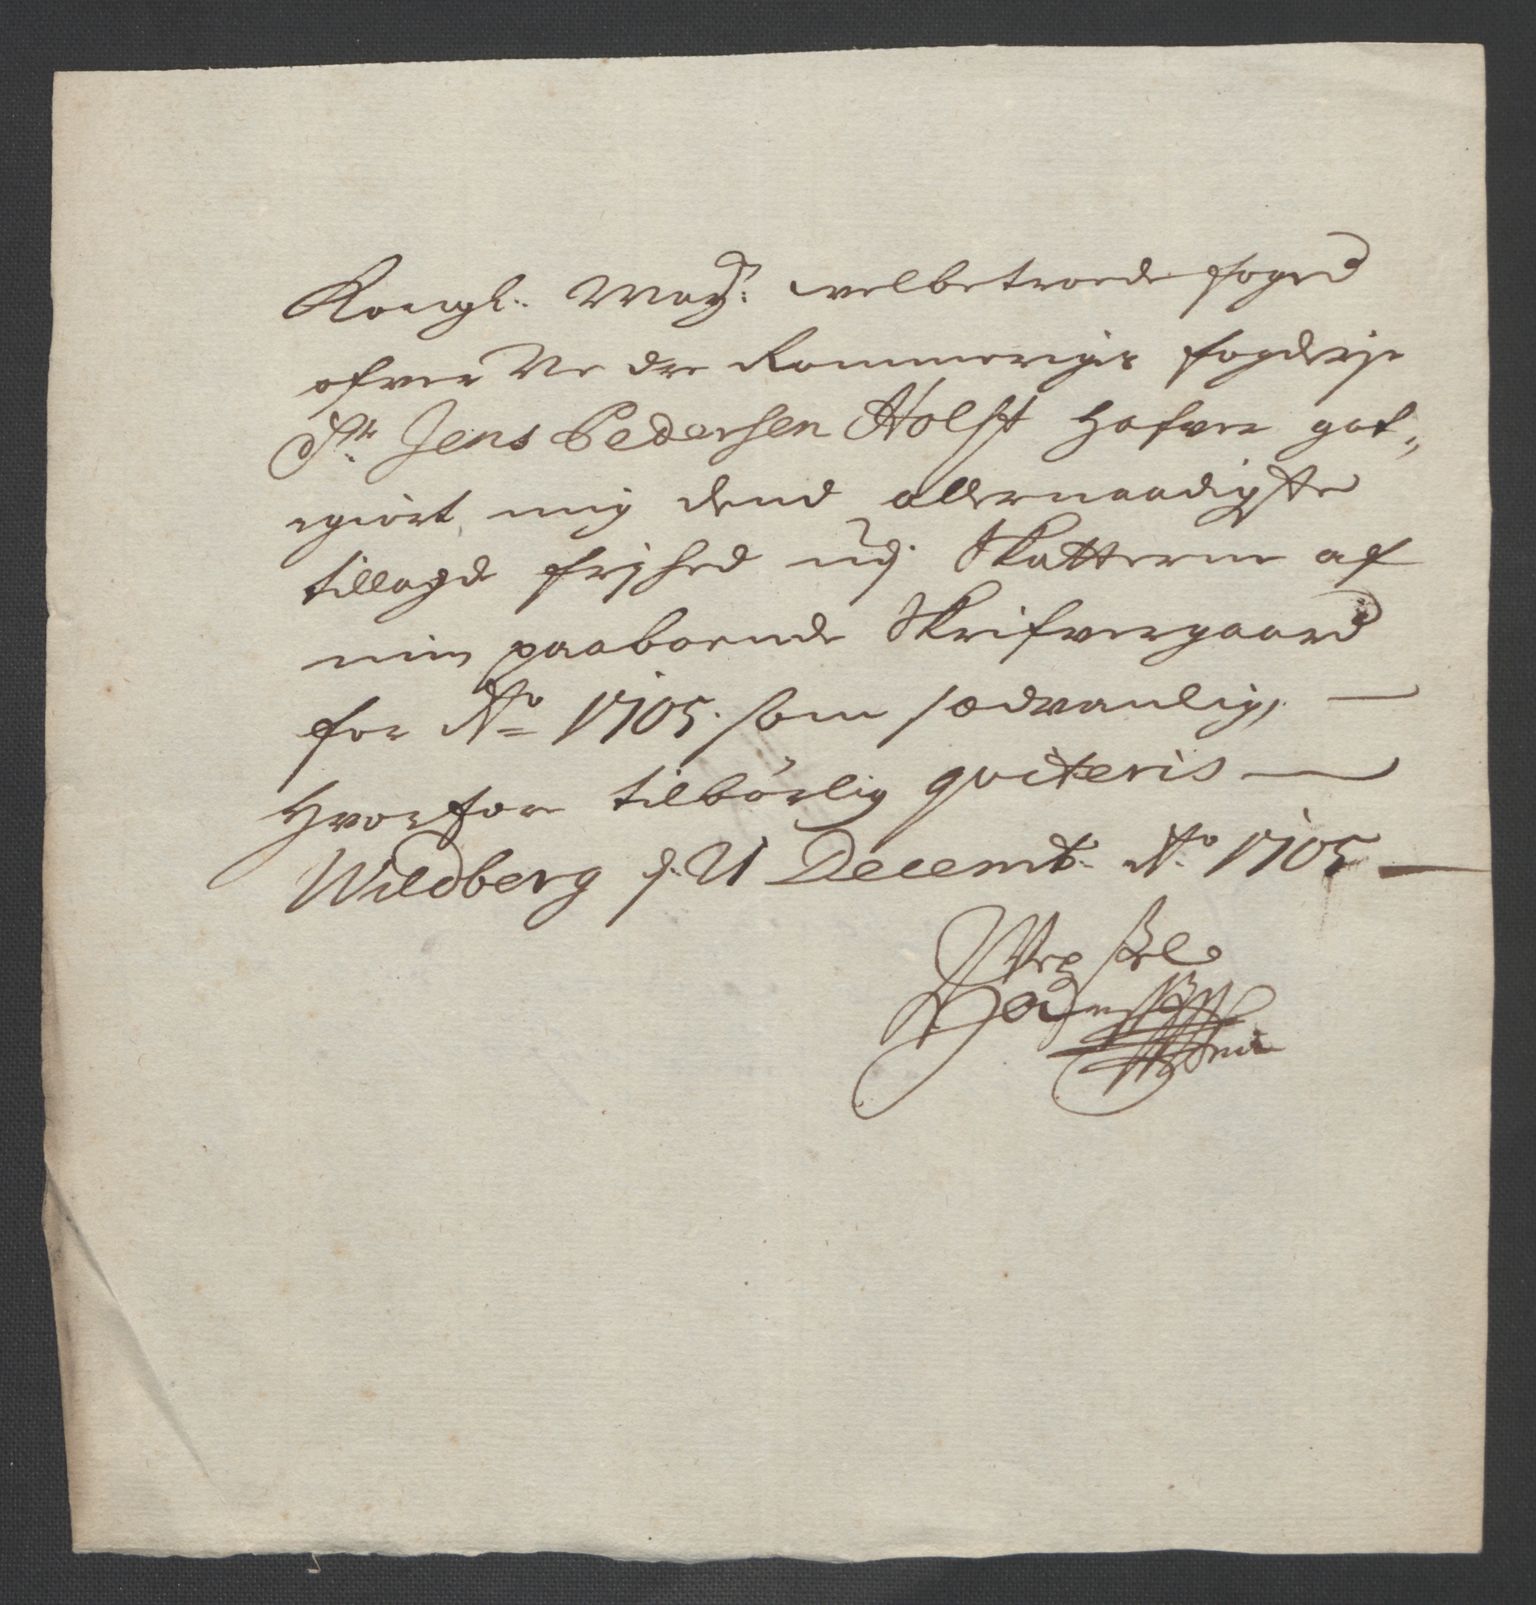 Kongl: May: welbetroede foged
ofver Nedre Rommerigis fogderje
Sr. Jens Pedersen Holst hafver got,
giort mig dend allernaadigste
tillagde frjhed udj Skatterne af
min paaboende Skrifvergaard
for Ao 1705. som sædvanlig, —
Hvorfor tilbörlig qviteris —
Wildberg d. 21 Decemb. Ao 1705 —